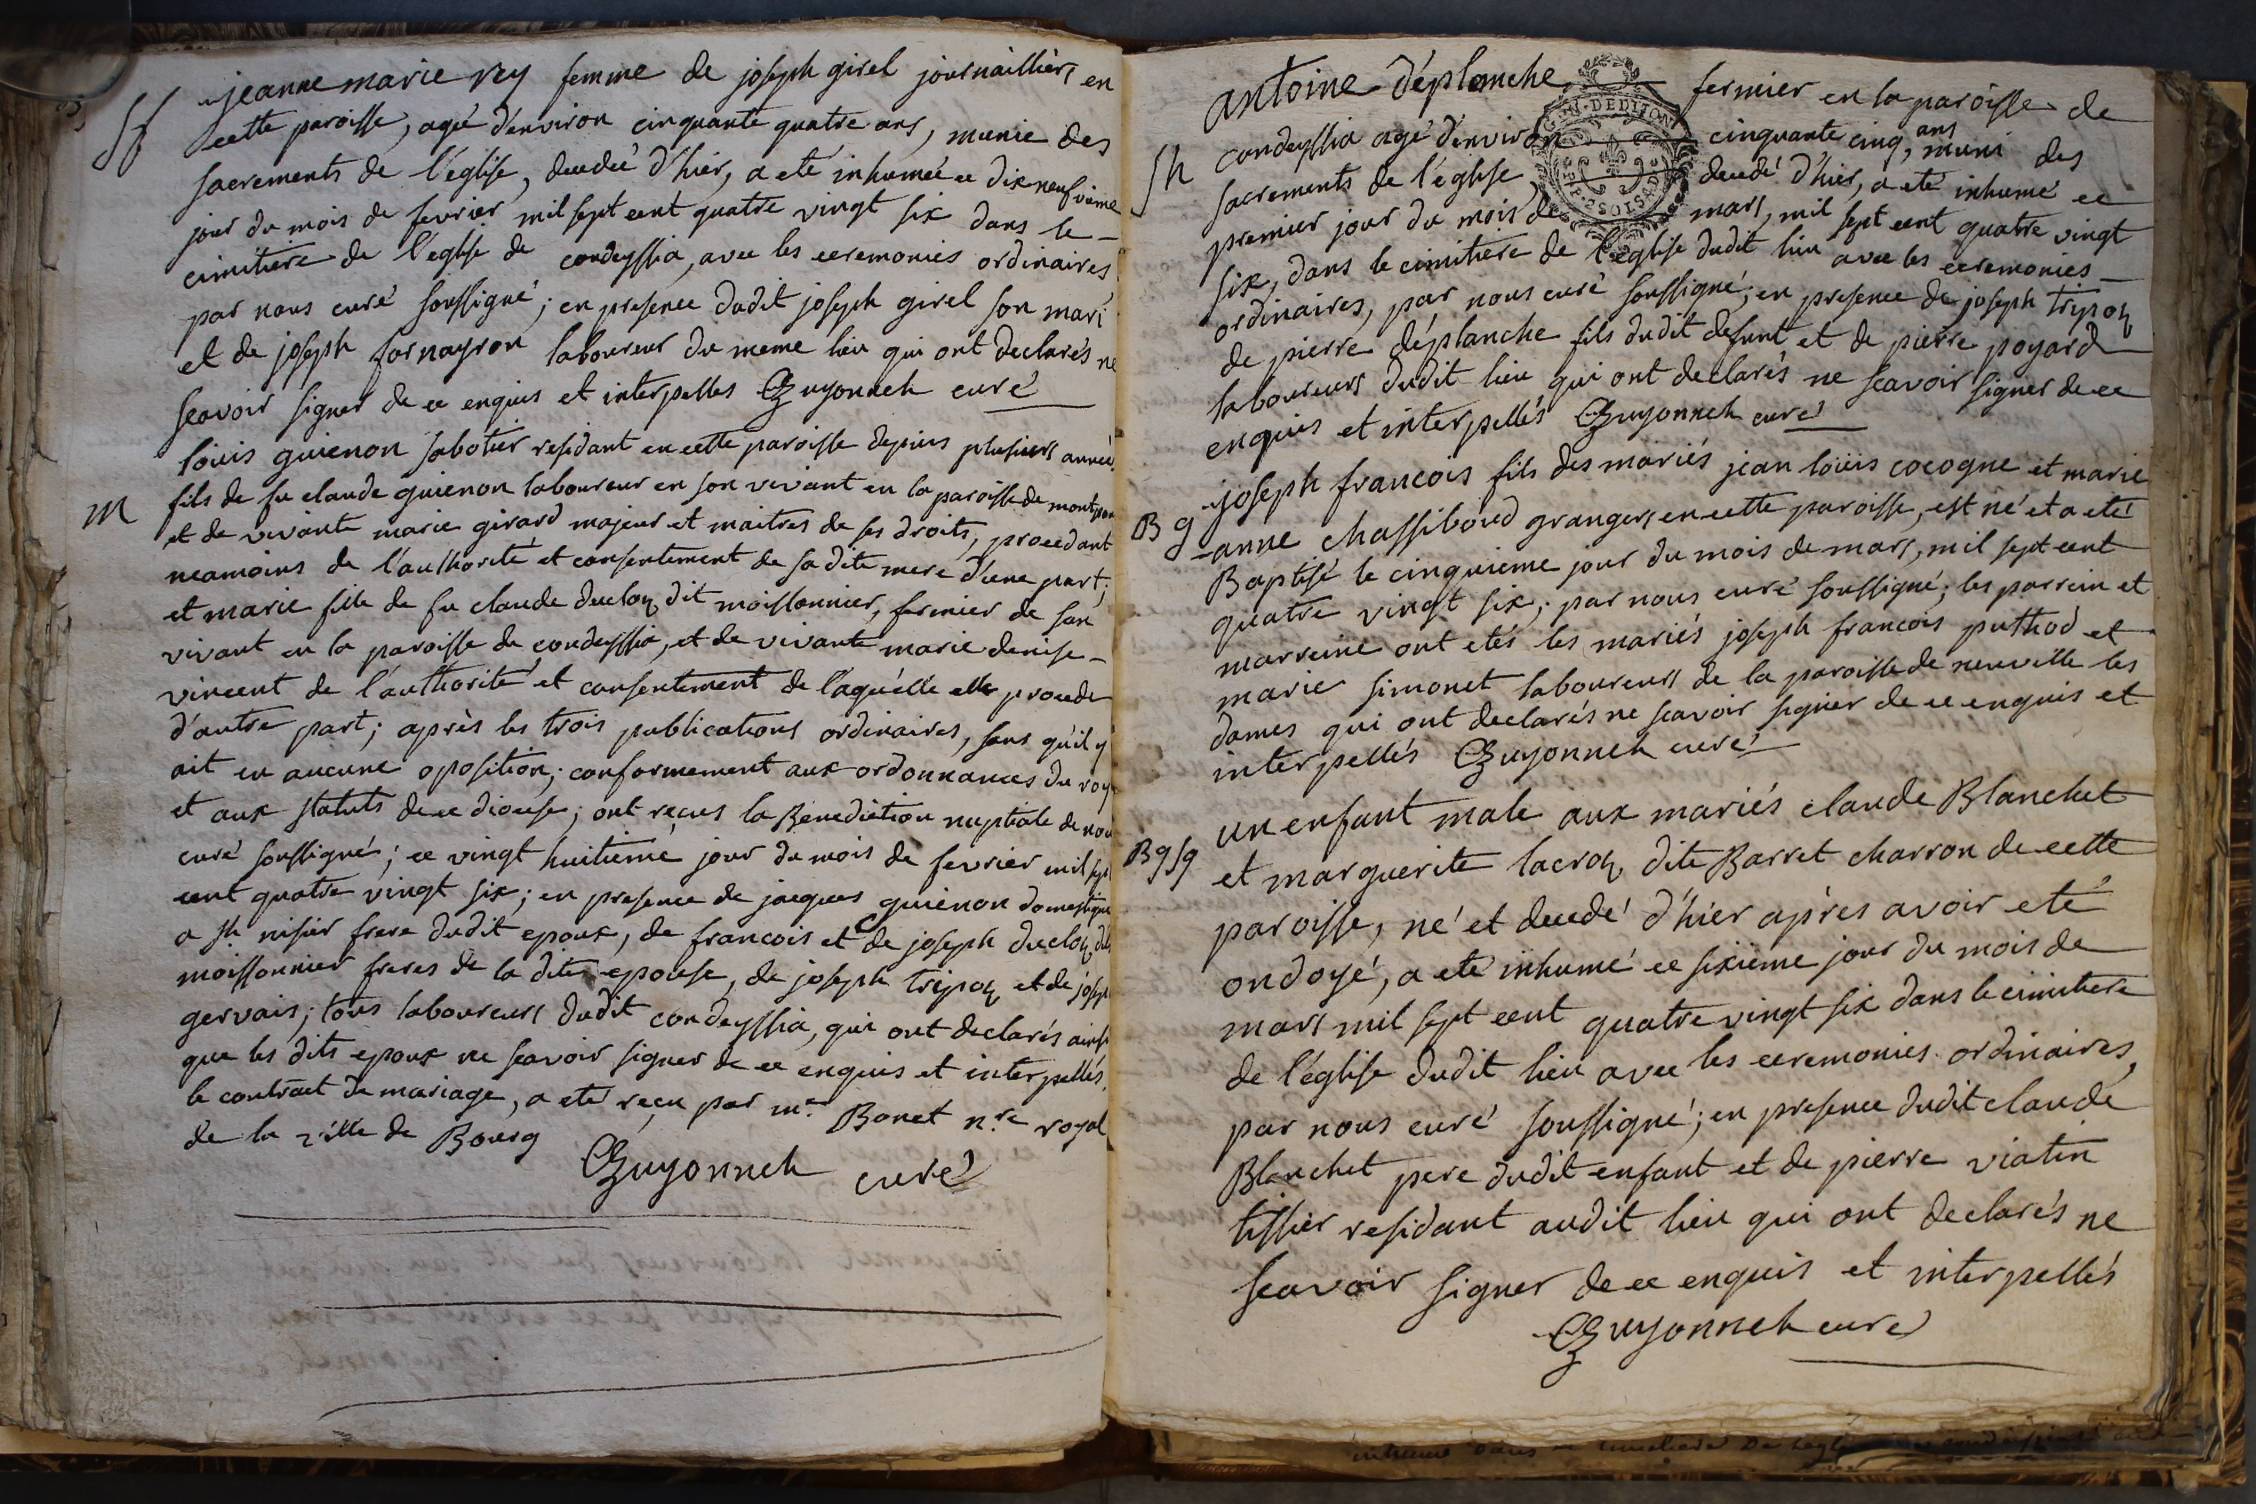 Sf
jeanne marie rey femme de joseph girel journailliers en
cette paroisse, agé d'environ cinquante quatre ans, munie des
sacrements de l'église, decedée d'hier, a eté inhumée ce dixneufvieme
jour du mois de fevrier mil sept cent quatre vingt six dans le
cimitiere de l'eglise de condeyssia, avec les ceremonies ordinaires
par nous curé soussigné; en presence dudit joseph girel son mari
et de joseph fornayron laboureur du meme lieu qui ont declarés ne
scavoir signer de ce enquis et interpellés Guyonneh curé
M
loüis guienon sabotier residant en cette paroisse depuis plusieurs années
fils de fu claude guienon laboureur en son vivant en la paroisse de
et de vivante marie girard majeur et maitres de ses droits, procedant
neamoins de l'authorité et consentement de sa dite mere d'une part;
et marie fille de fu claude duclox dit moissonnier, fermier de son
vivant en la paroisse de condeyssia, et de vivante marie denise
vincent de l'authorité et consentement de l'aquélle elle procede
d'autre part; après les trois publications ordinaires, sans qu'il y
ait eu aucune oposition; conformement aux ordonnances du roy
et aux statuts de ce diocese; ont reçus la Benediction nuptiale de nous
curé soussigné; ce vingt huitieme jour du mois de fevrier mil sept
cent quatre vingt six; en presence de jacques guienon domestique
a st nisier frere dudit epoux, de francois et de joseph duclox dit
moissonnier freres de la dite epouse, de joseph tripoz et de joseph
gervais; tous laboureurs dudit condeyssia, qui ont declarés ainsi
que les dits epoux ne scavoir signer de ce enquis et interpellés,
le contract de mariage, a eté reçu par me. Bonet nre. royal
de la ville de Bourg
Guyonneh curé
Sh
antoine déplanche fermier en la paroisse de
condeyssia agé d'environ cinquante cinq ans, muni des
sacrements de l'église, decedé d'hier, a eté inhumé ce
premier jour du mois de mars, mil sept cent quatre vingt
six, dans le cimitiere de l'église dudit lieu avec les ceremonies
ordinaires, par nous curé soussigné; en presence de joseph tripoz
de pierre déplanche fils dudit defunt et de pierre poyard
laboureurs dudit lieu qui ont declarés ne scavoir signer de ce
enquis et interpellés Guyonneh curé
B g
joseph francois fils des mariés jean loüis cocogne et marie
anne chassiboud grangers en cette paroisse, est né et a eté
Baptisé le cinquieme jour du mois de mars, mil sept cent
quatre vingt six; par nous curé soussigné; les parrein et
marreine ont etés les mariés joseph francois puthod et
marie simonet laboureurs de la paroisse de neuville les
dames qui ont declarés ne scavoir signer de ce enquis et
interpellés Guyonneh curé
B g Sg
un enfant male aux mariés claude Blanchet
et marguerite lacroz dite Barret charron de cette
paroisse, né et decedé d'hier après avoir eté
ondoyé, a eté inhumé ce sixiéme jour du mois de
mars mil sept cent quatre vingt six dans le cimitiere
de l'église dudit lieu avec les ceremonies ordinaires,
par nous curé soussigné; en presence dudit claude
Blanchet pere dudit enfant et de pierre viatin
tissier residant audit lieu qui ont declarés ne
scavoir signer de ce enquis et interpellés
Guyonneh curé